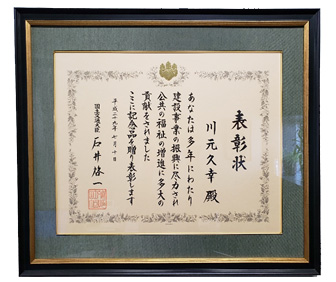 表彰状
川元久幸殿
あなたは多年にわたり
建設事業の振興に尽力され
公共の福祉の増進に多大の
貢献をされました
ここに記念品を贈り表彰します
平成二十九年七月十日
国土交通大臣 石井啓一